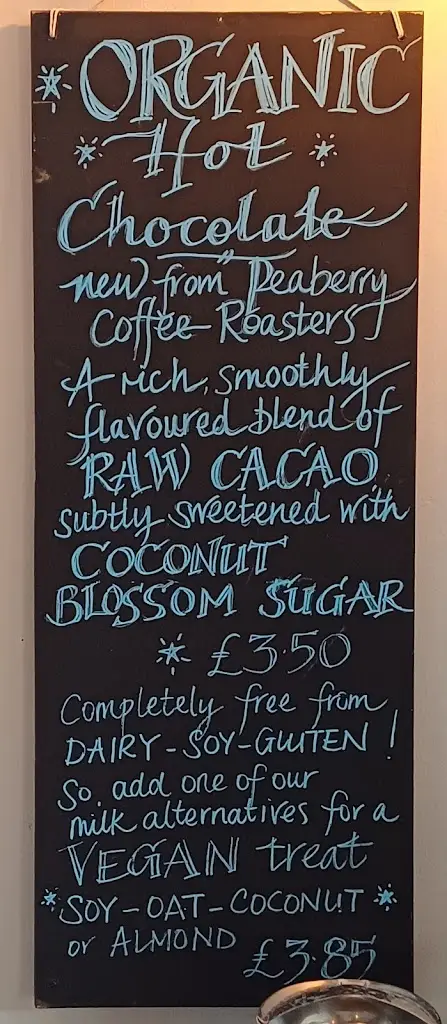 ORGANIC
Hot
Chocolate
new from Peaberry
Coffee Roasters
A rich, smoothly
flavoured blend of
RAW CACAO
subtly sweetened with
COCONUT
BLOSSOM SUGAR
£3.50
Completely free from
DAIRY-SOY-GLUTEN!
So, add one of our
milk alternatives for a
VEGAN treat
SOY-OAT-COCONUT
or ALMOND
£3.85